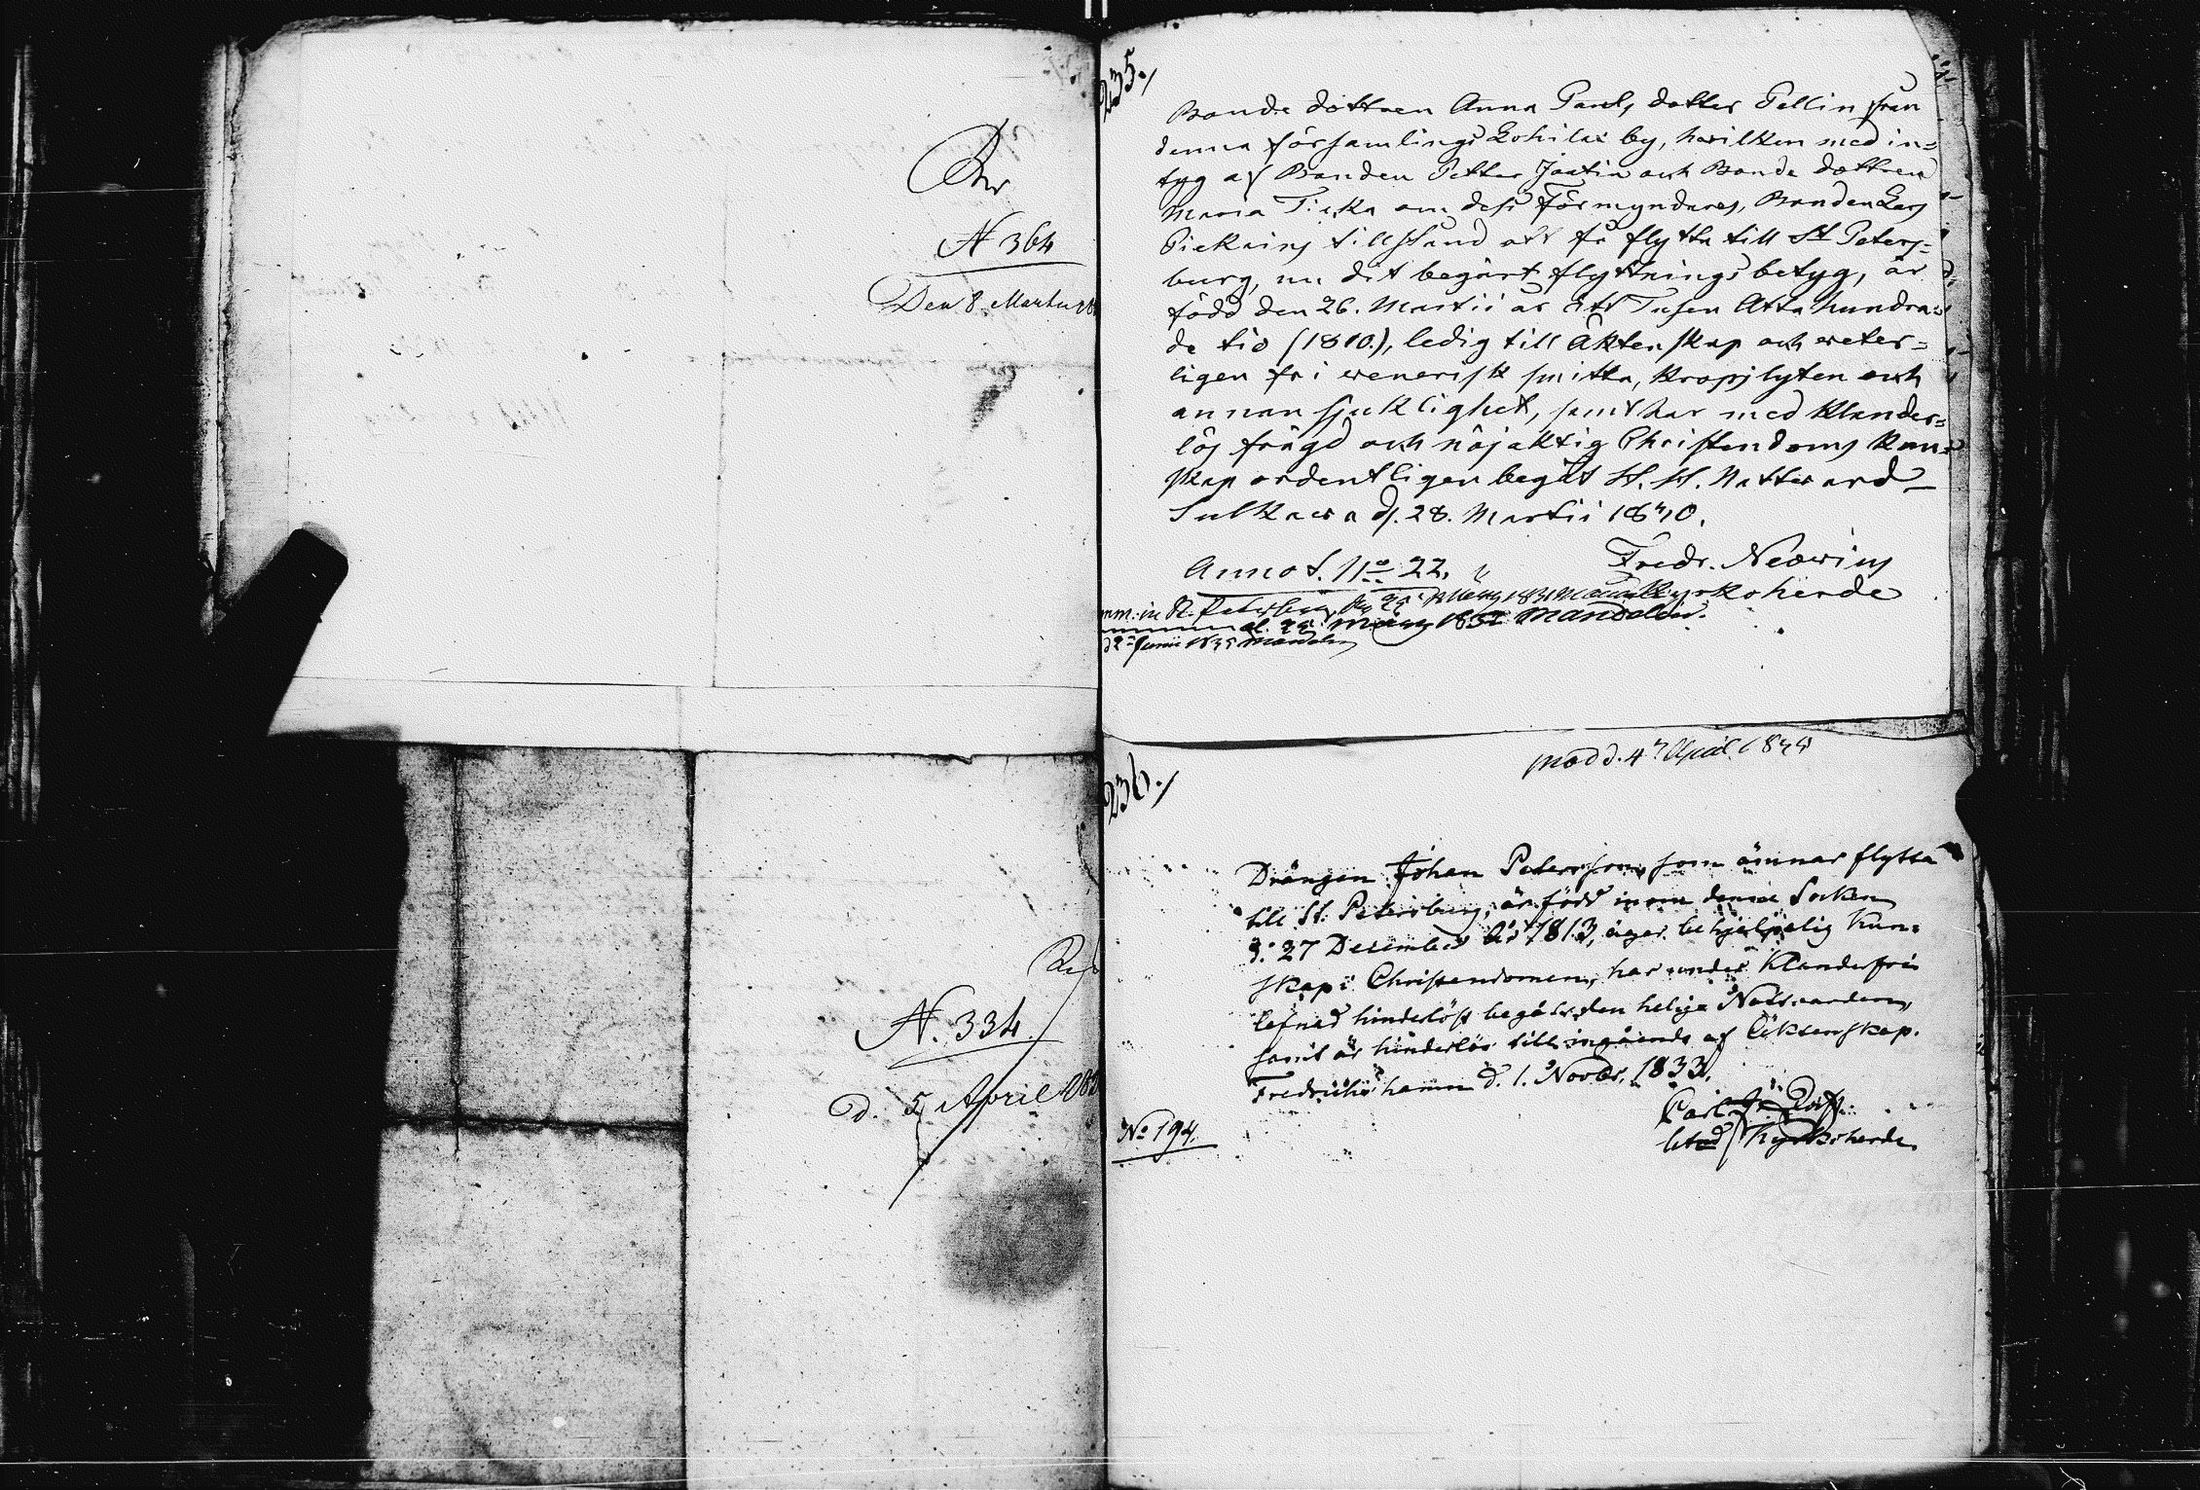 N 364
Den 8 Martii
235./
Bonde dottren Anna Pauls dotter Pellin från
denna församlings Lohilax by, hwilken med in=
tyg af Bonden Petter Jaatin och Bonde dottren
Maria om dess Förmynders, Bonden Lars
tillstånd att få flytta till St Peters=
burg, nu dit begärt flyttnings betyg, är
född den 26. Martii år Ett Tusen Åtta hundra=
de tio (1810.), ledig till Äktenskap och weter=
ligen fri wenerisk smitta, kropslyten och
annan sjuklighet, samt har med klander=
lös frägd och nöjaktig Christendoms kun=
skap ordentligen begåt H. H. Nattward_
Sulkawa d. 28. Martii 1840.
Fredr. Neovius
Annot. No 22. Kyrkoherde
mm. in St. Petersburg
Mandelin
Junii Mandelin
236./
mod d. 4 April
Drängen Johan Petersson, som ämnar flytta
till St. Petersburg, är född inom denna Socken
d. 27 December år 1813, äger behjelpelig kun=
skap i Christendomen, har under klanderfri
lefnad hinderlöst begått den helige Nattvarden,
samt är hinderlös till ingående af Äktenskap.
Fredrikshamn d. 1. Novbr. 1833.
Carl
Kyrkoherde
No 194.
N. 334
d. 5 April